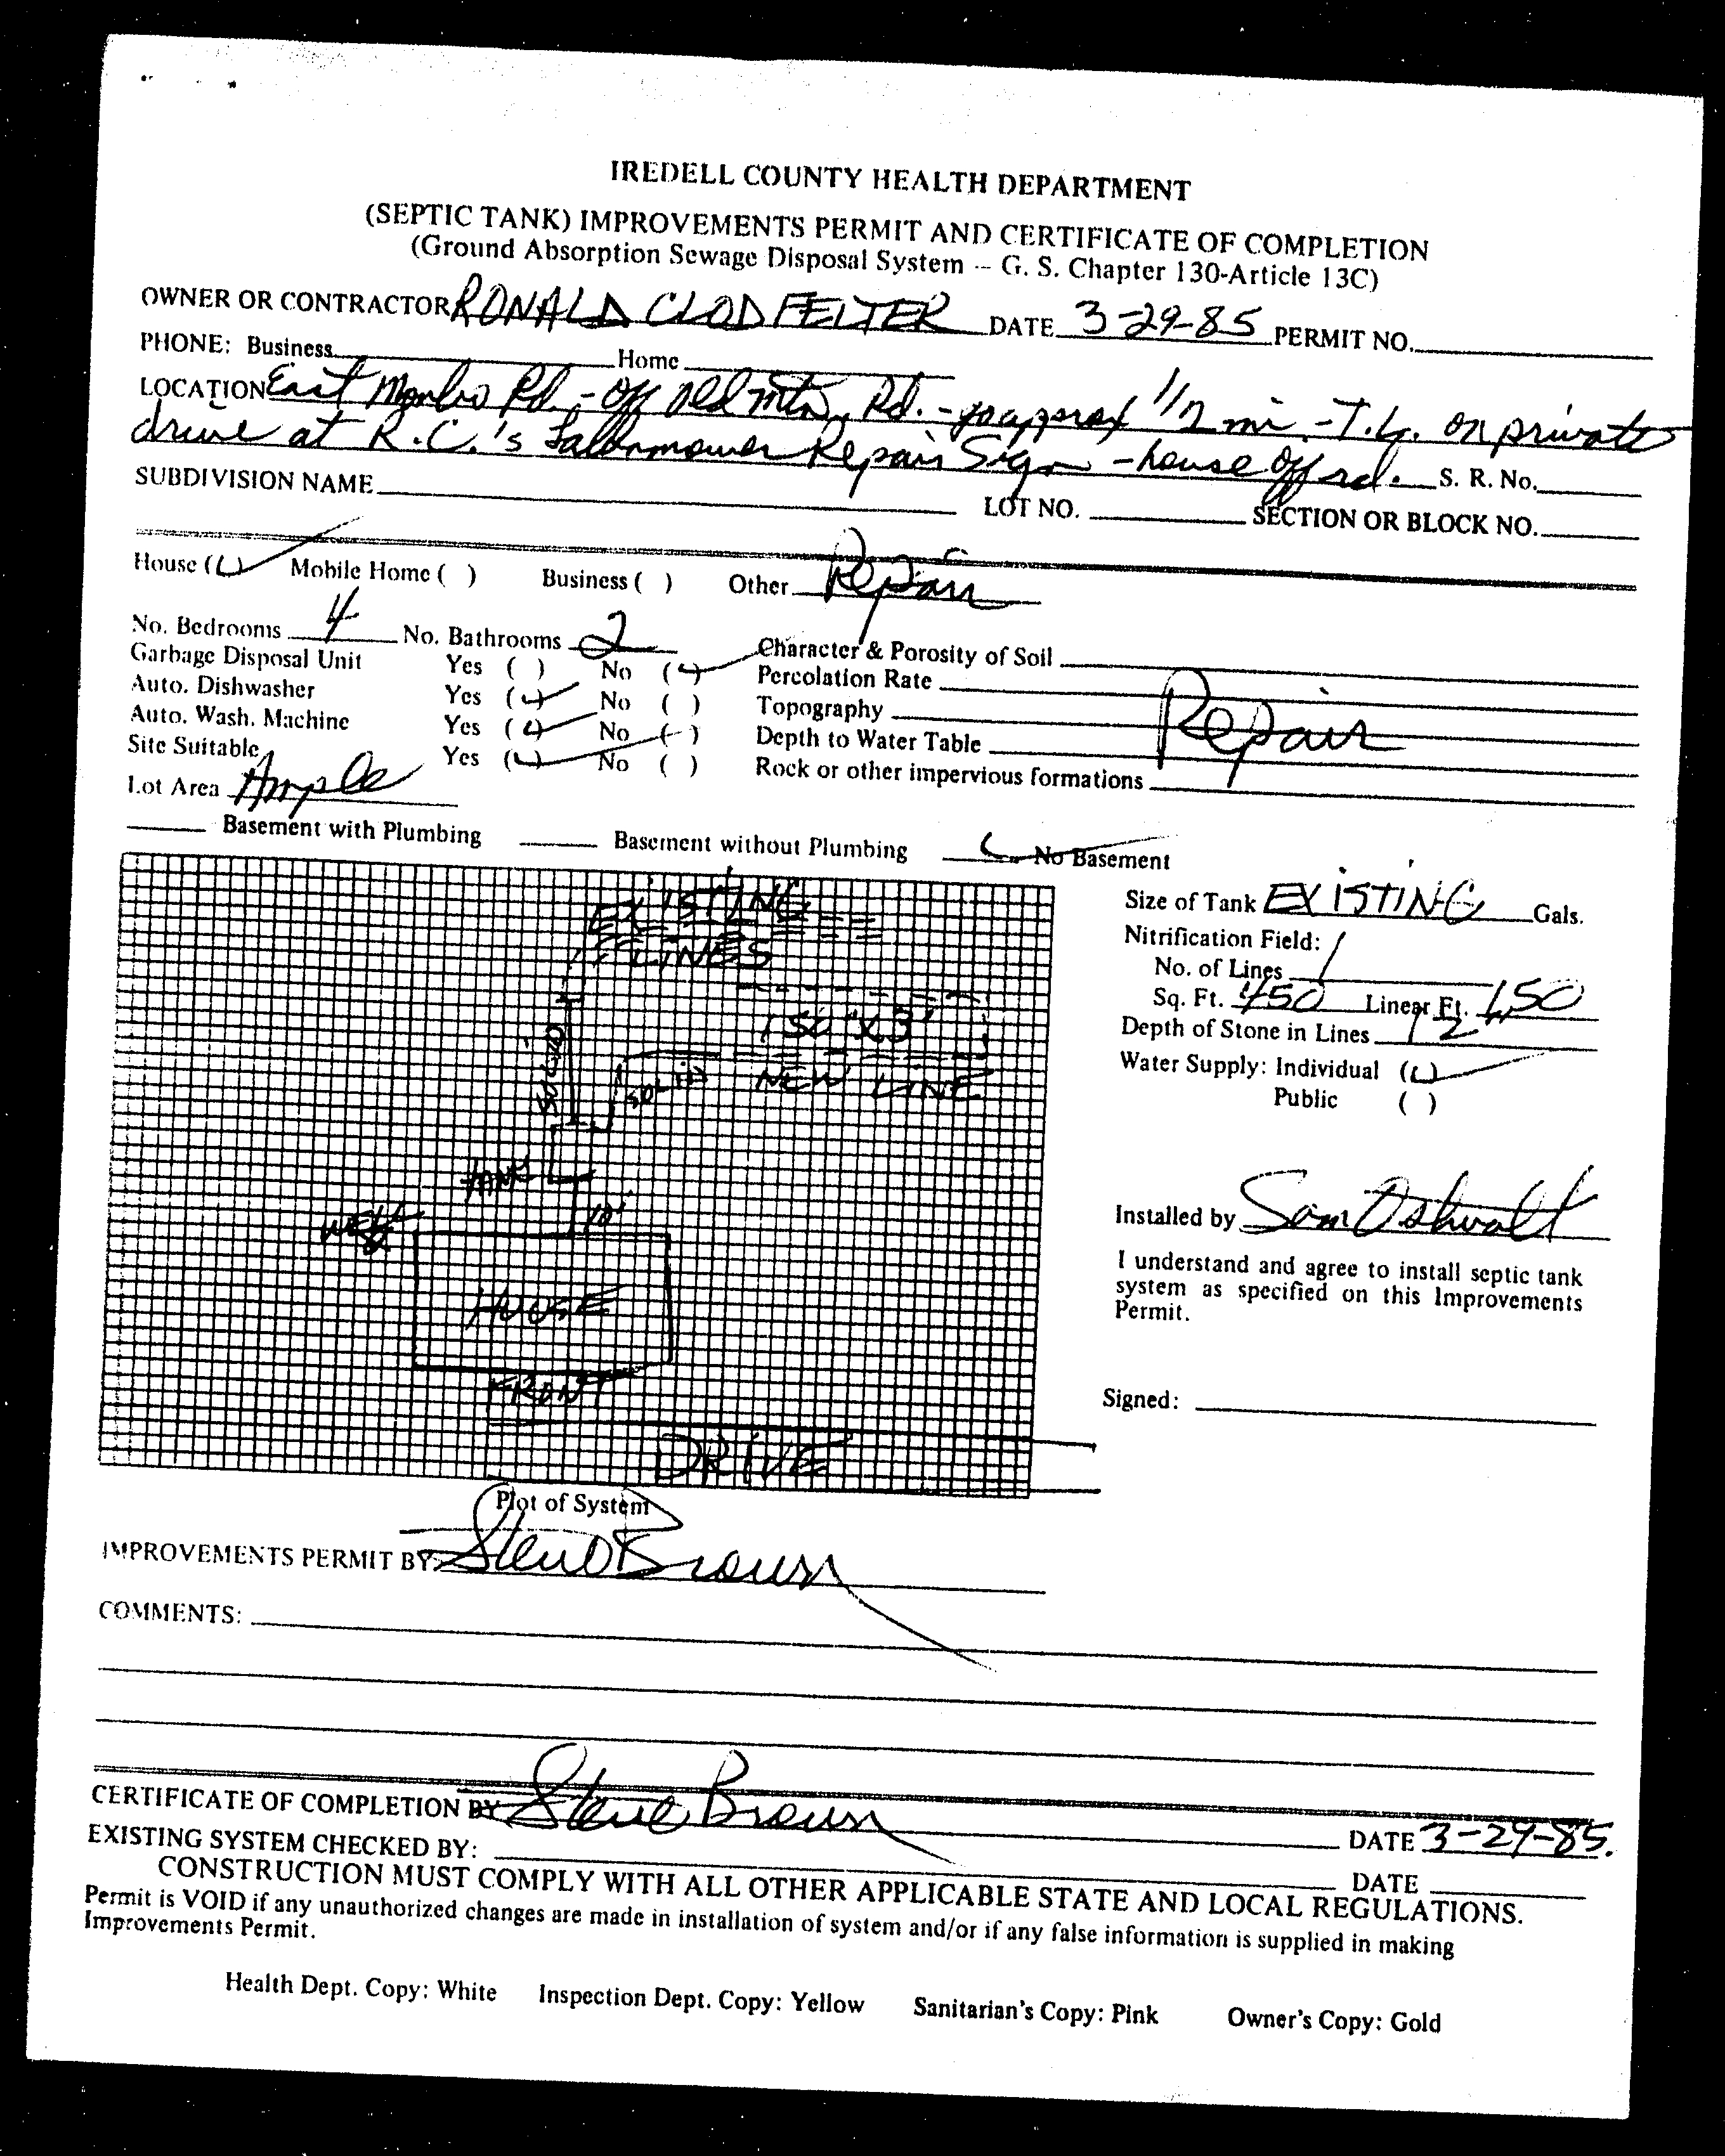 IREDELL COUNTY HEALTH DEPARTMENT
(SEPTIC TANK) IMPROVEMENTS PERMIT AND CERTIFICATE OF COMPLETION
(Ground Absorption Sewage Disposal System -- G. S. Chapter 130-Article 13C)
OWNER OR CONTRACTOR RONALD CLODFELTER DATE 3-29-85 PERMIT NO.
PHONE: Business Home
LOCATION East Monbo Rd. - off Old Mtn. Rd. - go approx 1/2 mi - T.L. on private
drive at R.C.'s Lawnmower Repair Sign - house off rd. S. R. No.
SUBDIVISION NAME LOT NO. SECTION OR BLOCK NO.
House (✓) Mobile Home ( ) Business ( ) Other Repair
No. Bedrooms 4 No. Bathrooms 2 Character & Porosity of Soil
Garbage Disposal Unit Yes ( ) No (✓) Percolation Rate
Auto. Dishwasher Yes (✓) No ( ) Topography Repair
Auto. Wash. Machine Yes (✓) No ( ) Depth to Water Table
Site Suitable Yes (✓) No ( ) Rock or other impervious formations
Lot Area Ample
Basement with Plumbing Basement without Plumbing ✓ No Basement
EXISTING
LINES
150' X 3'
NEW LINE
SOLID
SOLID
TANK
10'
WELL
HOUSE
FRONT
DRIVE
Plot of System
Size of Tank EXISTING Gals.
Nitrification Field:
No. of Lines 1
Sq. Ft. 450 Linear Ft. 150
Depth of Stone in Lines 12
Water Supply: Individual (✓)
Public ( )
Installed by Sam Oshwalt
I understand and agree to install septic tank
system as specified on this Improvements
Permit.
Signed:
IMPROVEMENTS PERMIT BY: Steve Brown
COMMENTS:
CERTIFICATE OF COMPLETION BY Steve Brown DATE 3-29-85.
EXISTING SYSTEM CHECKED BY: DATE
CONSTRUCTION MUST COMPLY WITH ALL OTHER APPLICABLE STATE AND LOCAL REGULATIONS.
Permit is VOID if any unauthorized changes are made in installation of system and/or if any false information is supplied in making
Improvements Permit.
Health Dept. Copy: White Inspection Dept. Copy: Yellow Sanitarian's Copy: Pink Owner's Copy: Gold